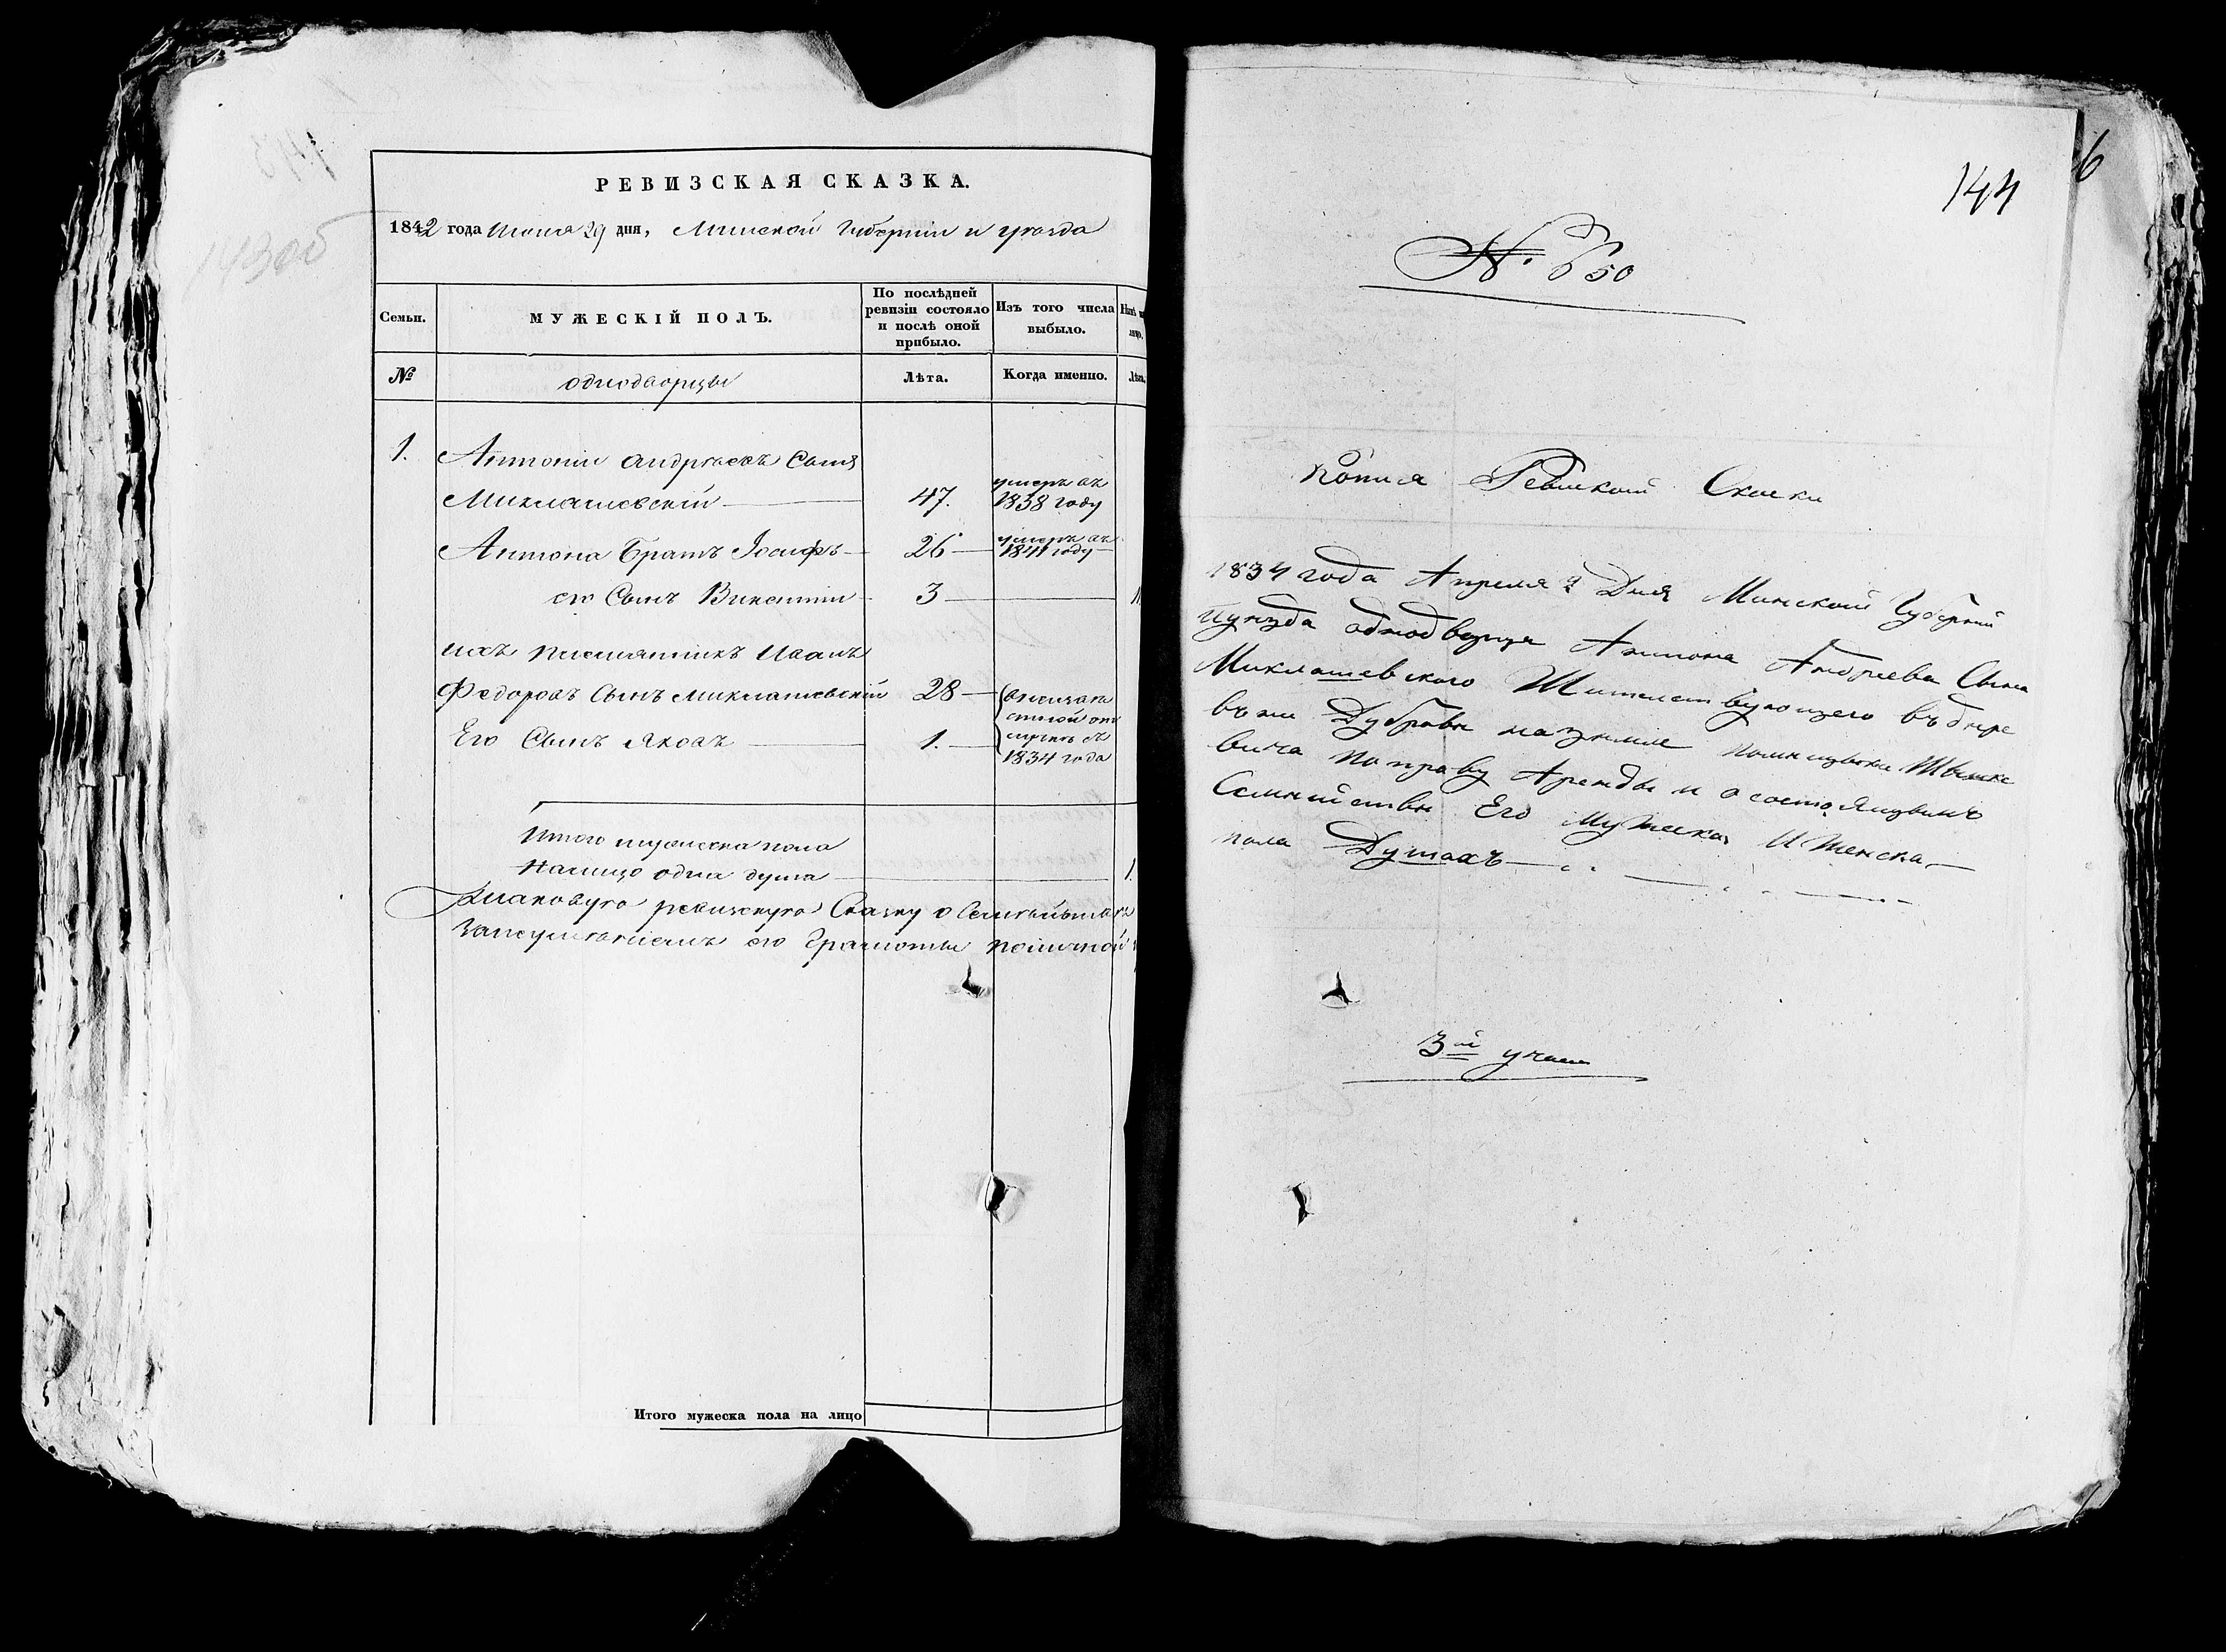 143об
РЕВИЗСКАЯ СКАЗКА.
1842 года Июня 29 дня, Минской Губерніи и уѣзда
Семьи.
МУЖЕСКІЙ ПОЛЪ.
По послѣдней ревизіи состояло и послѣ оной прибыло.
Изъ того числа выбыло.
№
однодворцы
Лѣта.
Когда именно.
1.
Антоніи Андрѣевъ Сынъ
Миклашевскій 47. умеръ въ 1838 году
Антона Братъ Іосифъ 26 умеръ въ 1841 году
его Сынъ Викентіи 3
ихъ племянникъ Иванъ
Федоровъ Сынъ Миклашевскій 28
Его Сынъ Яковъ 1.
1834 года
Итого мужеска пола
Налицо одна душа 1.
ревизскую Сказку о Семействѣ
его Грамоты
Итого мужеска пола на лицо
144
6
№ 650
Копия Ревизкой Скаски
1834 года Апреля 9 Дня Минской Губерніи
иуезда однодворца Антона Андреева Сына
Миклашевского Жительствующего въ дере
вни Дубравы на земле помещика
вича по праву Аренды и о состоящвихъ
Семействе Его Мужеска И Женска
пола Душахъ
3й участ